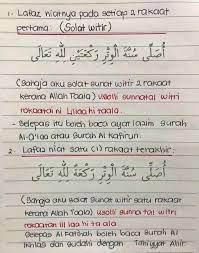 1. Lafaz niatnya pada setiap 2 rakaat
pertama: (Solat witir)
أُصَلِّى سُنَّةَ الْوِتْرِ رَكْعَتَيْنِ لِلّٰهِ تَعَالَى
(Sahaja aku solat sunat witir 2 rakaat
kerana Allah Taala) usolli sunnatal witri
rokaataini lillahi ta'ala.
- Selepas itu boleh baca ayat lazim surah
Al-A'laa atau surah Al Kafirun.
2. Lafaz niat satu (1) rakaat terakhir:
أُصَلِّى سُنَّةَ الْوِتْرِ رَكْعَةً لِلّٰهِ تَعَالَى
(Sahaja aku solat sunat witir satu rakaat
kerana Allah Taala) usolli sunnatal witri
rokaatan lillaahi ta ala
Selepas Al Fatihah boleh baca surah Al
Ikhlas dan sudahi dengan Tahiyyat Ahir